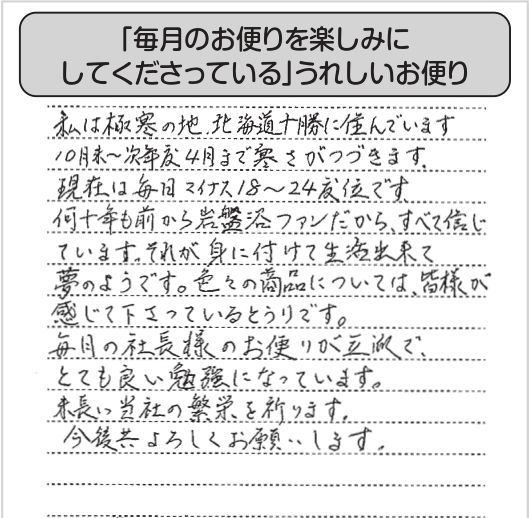 「毎月のお便りを楽しみに
してくださっている」うれしいお便り
私は極寒の地、北海道十勝に住んでいます
10月末〜次年度4月まで寒さがつづきます。
現在は毎日マイナス18〜24度位です
何十年も前から岩盤浴ファンだから、すべて信じ
ています。それが身に付けて生活出来て
夢のようです。色々の商品については、皆様が
感じて下さっているとうりです。
毎月の社長様のお便りが立派で、
とても良い勉強になっています。
末長い当社の繁栄を祈ります。
今後共よろしくお願いします。